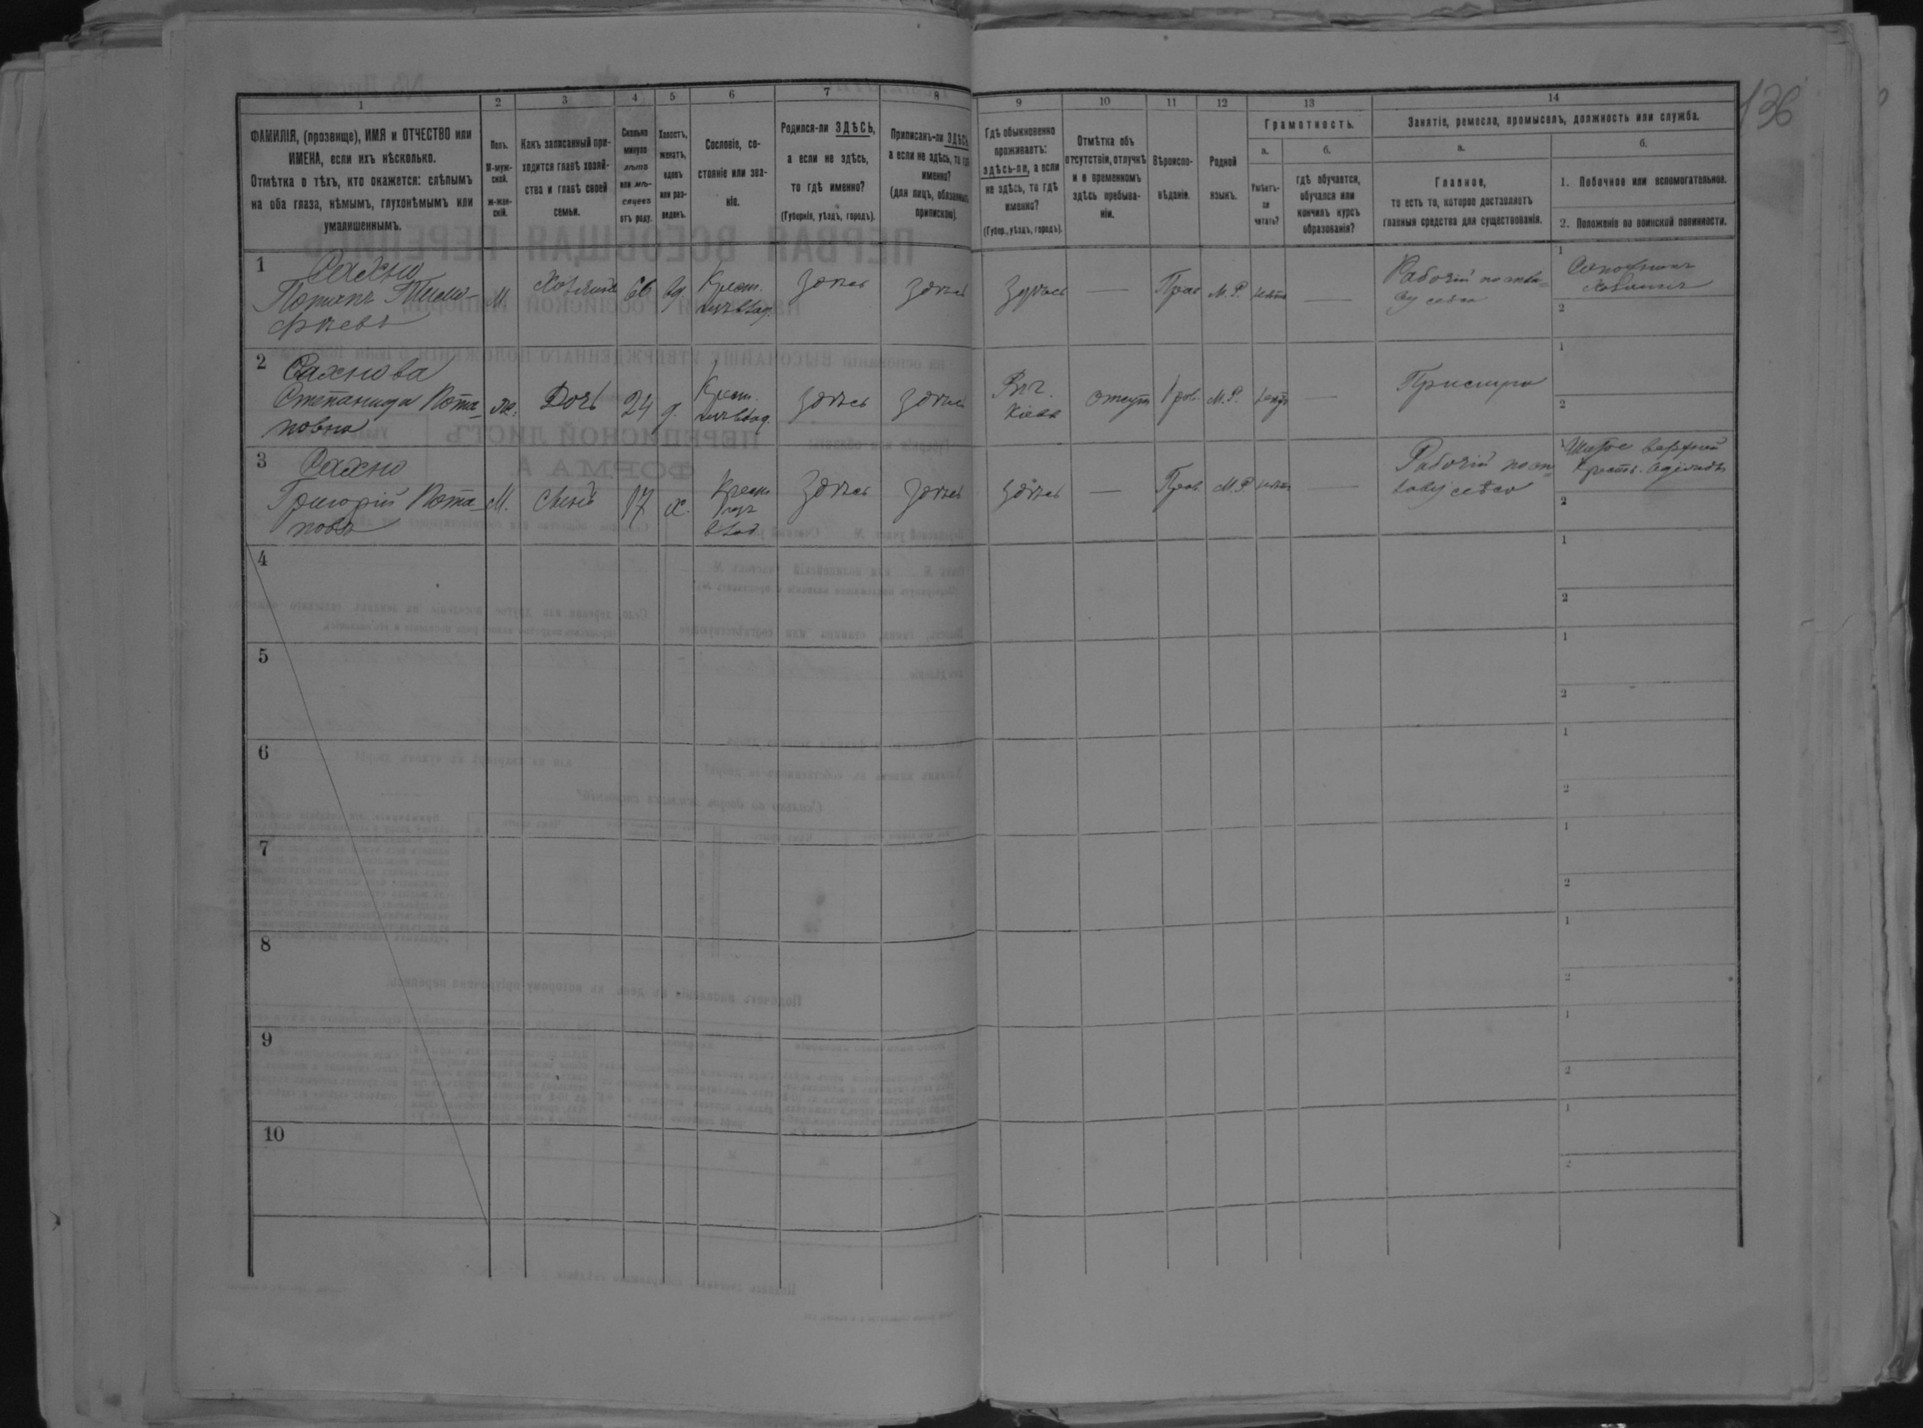 136
1
2
3
4
5
6
7
8
9
10
11
12
13
14
ФАМИЛІЯ, (прозвище), ИМЯ и ОТЧЕСТВО или
ИМЕНА, если ихъ нѣсколько.
Отмѣтка о тѣхъ, кто окажется: слѣпымъ
на оба глаза, нѣмымъ, глухонѣмымъ или
умалишеннымъ.
Полъ.
М-муж-
ской.
ж-жен-
скій.
Какъ записанный при-
ходится главѣ хозяй-
ства и главѣ своей
семьи.
Сколько
минуло
лѣтъ
или мѣ-
сяцевъ
отъ роду.
Холостъ,
женатъ,
вдовъ
или раз-
веденъ.
Сословіе, со-
стояніе или зва-
ніе.
Родился-ли ЗДѢСЬ,
а если не здѣсь,
то гдѣ именно?
(Губернія, уѣздъ, городъ).
Приписанъ-ли ЗДѢСЬ,
а если не здѣсь, то гдѣ
именно?
(для лицъ, обязанныхъ
припискою).
Гдѣ обыкновенно
проживаетъ:
здѣсь-ли, а если
не здѣсь, то гдѣ
именно?
(Губер., уѣздъ, городъ).
Отмѣтка объ
отсутствіи, отлучкѣ
и о временномъ
здѣсь пребыва-
ніи.
Вѣроиспо-
вѣданіе.
Родной
языкъ.
Грамотность.
а.
Умѣетъ-
ли
читать?
б.
гдѣ обучается,
обучался или
кончилъ курсъ
образованія?
Занятіе, ремесло, промыселъ, должность или служба.
а.
Главное,
то есть то, которое доставляетъ
главныя средства для существованія.
б.
1. Побочное или вспомогательное.
2. Положеніе по воинской повинности.
1
Сахно
Потапъ Тимо-
фѣевъ
М.
Хозяинъ
66
вд.
Крест.
здѣсь
здѣсь
здѣсь
—
Прав
М.Р.
нѣтъ
—
Рабочій
1
2
2
Сахнова
Степанида Пота-
повна
ж.
Дочь
24
д.
Крест.
здѣсь
здѣсь
Кіевъ
отсут
Прав.
М.Р.
нѣтъ
—
Прислуга
1
2
3
Сахно
Григорій Пота-
повъ
М.
Сынъ
17
х.
Крест
здѣсь
здѣсь
здѣсь
—
Прав.
М.Р.
нѣтъ
—
Рабочій
1
верхней
2
4
1
2
5
1
2
6
1
2
7
1
2
8
1
2
9
1
2
10
1
2